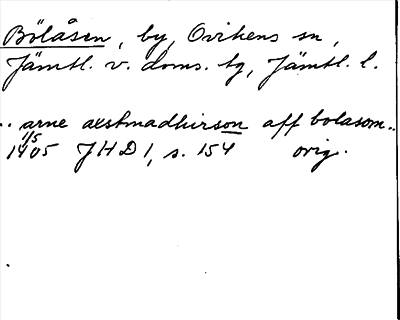 Bölåsen, by, Ovikens sn,
Jämtl. v. doms. tg, Jämtl. l.
.. arne aestmadhirson aff bolasom..
1/5
1405 JHD 1, s. 154 orig.